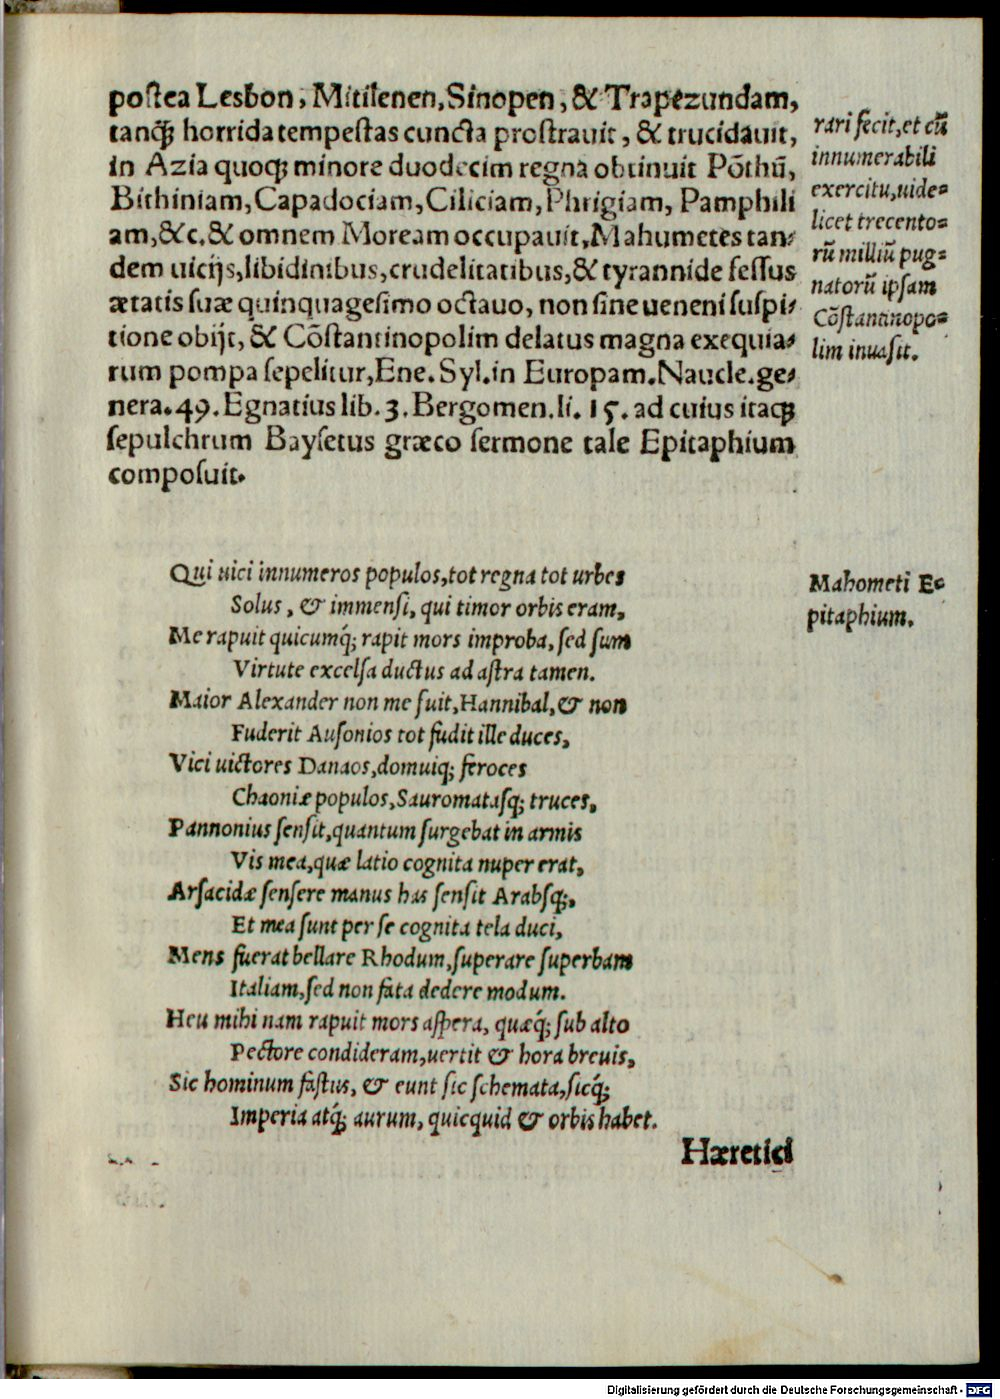 postea Lesbon, Mitilenen, Sinopen, & Trapezundam,
tanq̃ꝫ horrida tempestas cuncta prostrauit, & trucidauit,
in Azia quoqꝫ minore duodecim regna obtinuit Põthũ,
Bithiniam, Capadociam, Ciliciam, Phrigiam, Pamphili
am, &c. & omnem Moream occupauit, Mahumetes tan-
dem uicijs, libidinibus, crudelitatibus, & tyrannide fessus
ætatis suæ quinquagesimo octauo, non sine ueneni suspi-
tione obijt, & Cõstantinopolim delatus magna exequia-
rum pompa sepelitur, Ene. Syl. in Europam. Naucle. ge-
nera. 49. Egnatius lib. 3. Bergomen. li. 15. ad cuius itaqꝫ
sepulchrum Baysetus græco sermone tale Epitaphium
composuit.
rari fecit, et cũ
innumerabili
exercitu, uide=
licet trecento=
rũ milliũ pug=
natorũ ipsam
Cõstantinopo=
lim inuasit.
Qui uici innumeros populos, tot regna tot urbes
Solus, & immensi, qui timor orbis eram,
Me rapuit quicumq́; rapit mors improba, sed sum
Virtute excelsa ductus ad astra tamen.
Maior Alexander non me fuit, Hannibal, & non
Fuderit Ausonios tot fudit ille duces,
Vici uictores Danaos, domuiq; feroces
Chaoniæ populos, Sauromatasq; truces,
Pannonius sensit, quantum surgebat in armis
Vis mea, quæ latio cognita nuper erat,
Arsacidæ sensere manus has sensit Arabsq;,
Et mea sunt per se cognita tela duci,
Mens fuerat bellare Rhodum, superare superbam
Italiam, sed non fata dedere modum.
Heu mihi nam rapuit mors aspera, quæq́; sub alto
Pectore condideram, uertit & hora breuis,
Sic hominum fastus, & eunt sic schemata, sicq́;
Imperia atq́; aurum, quicquid & orbis habet.
Mahometi E-
pitaphium.
Hæretici
Digitalisierung gefördert durch die Deutsche Forschungsgemeinschaft - DFG